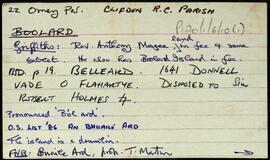 22 Omey Par. CLIFDEN R.C. PARISH
BOOLARD
Griffiths: Rev. Anthony Magee in fee & some
sand
sublet. He also has Boolard Island in fee.
BSD. p 19. BELLEARD. 1641 DONNELL
O FLAHARTYE. DISPOSED TO Sir
ROBERT HOLMES
Pronounced
O.S. LIST '86 AN BHUAILE ARD
The island is a drumlin.
F.N.B: Buaile Ard, T. Martin